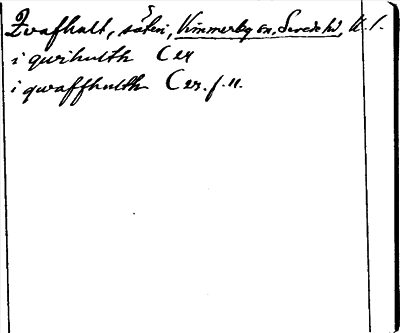 Qvafhult, säteri, Vimmerby sn, Sevede hd, K. l.
i qwihulth C ex
i qwaffhulth C ex. f. 11.